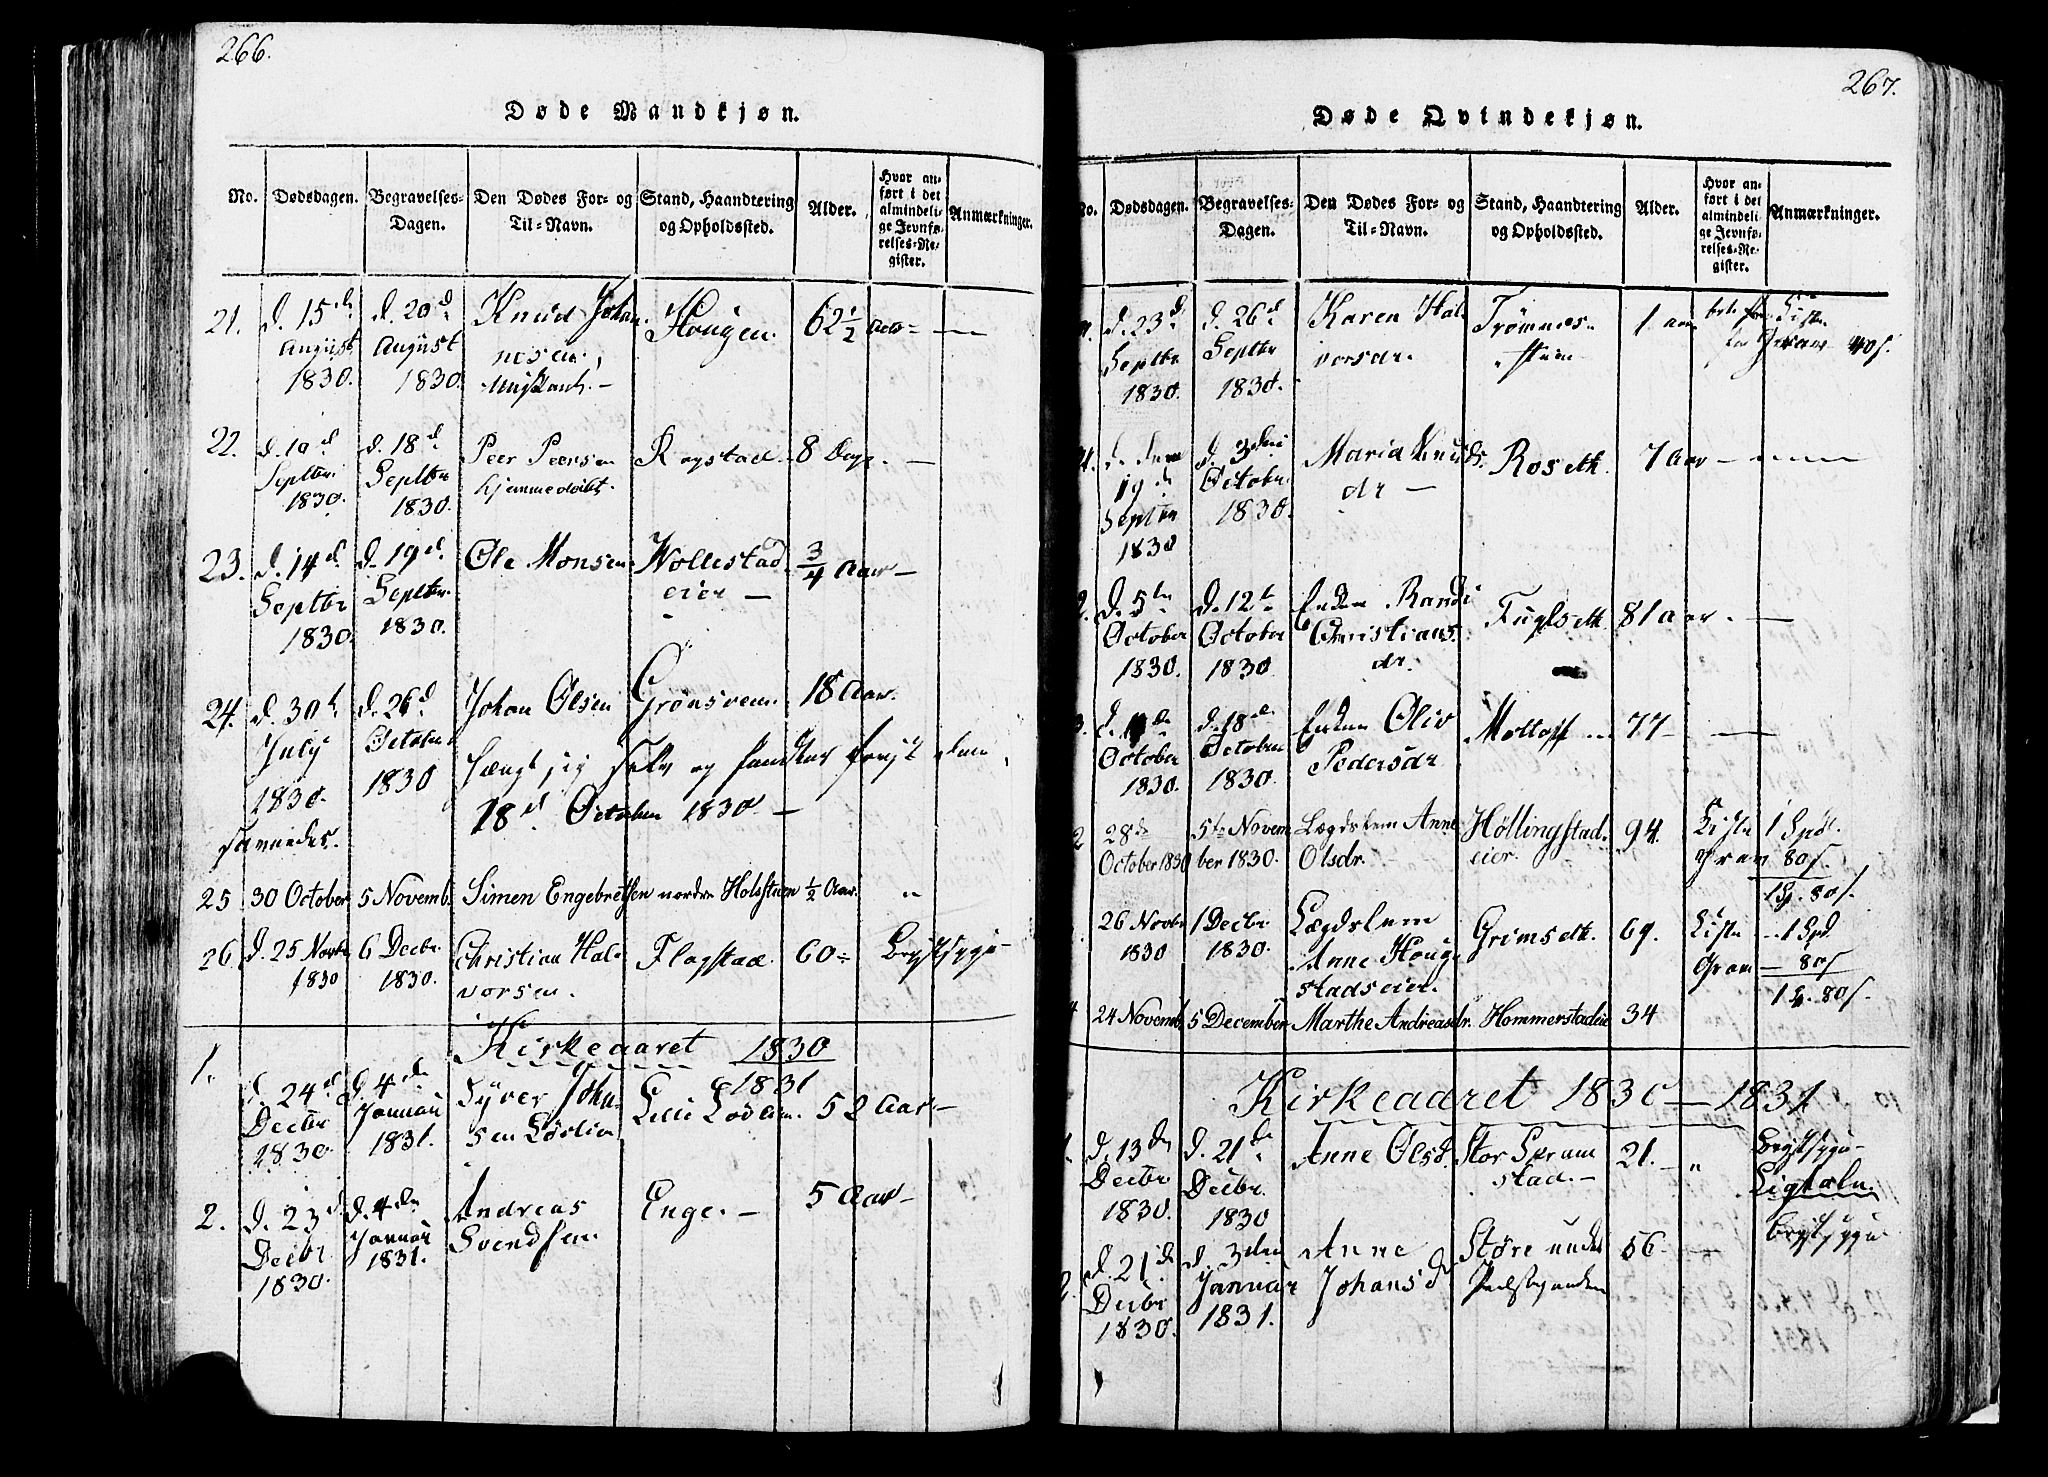 266.
Døde Mandkjøn.
No. Dødsdagen. Begravelses-Dagen. Den Dødes For- og Til-Navn. Stand, Haandtering og Opholdssted. Alder. Hvor anført i det almindelige Jevnførelses-Register. Anmærkninger.
21. d. 15de August 1830. d. 20d August 1830. Knud Johannesen, Hougen. 62 1/2 Aar
22. d. 10d Septbr. 1830. d. 18d Septbr 1830. Peer Peersen hjemmedøbt. Rogstad. 8 Dage.
23. d. 14d Septbr 1830. d. 19d. Septbr. 1830. Ole Monsen Wollestad eier 3/4 Aar
24. d. 30t July 1830. savnedes. d. 26d October 1830 Johan Olsen Grønsveen 18 Aar.
Hængt sig selv og fandtes først den
18d. October 1830.
25 30 October 5 Novemb. Simen Engebretsen nordre Holsstuen 1/2 Aar. "
26. d. 25 Novbr 1830 6 Decbr. 1830. Christian Halvorsen. Flagstad. 60 Brystsyge
Kirkeaaret 1830
1831
1. d. 24d Decbr 1830. d. 4de Januari 1831. Syver Johnsen Lille 52 Aar
2. d. 23d. Decbr. 1830. d. 4de Januar 1831. Andreas Svendsen Enge. 5 Aar
267.
Døde Qvindekjøn.
No. Dødsdagen. Begravelses-Dagen. Den Dødes For- og Til-Navn. Stand, Haandtering og Opholdssted. Alder. Hvor anført i det almindelige Jevnførelses-Register. Anmærkninger.
d. 23d Septbr 1830. d. 26d Septbr 1830. Karen Halvorsdr. Trømnesstuen 1. aar Kiste 40 s.
19de Septbr 1830 d. 3die October 1830. Maria Knudsdr Roseth. 7 Aar
2. d. 5te October 1830. d. 12te October 1830. Enken Randi Christiansdr. Fuglseth 81 Aar.
3. October 1830. d. 18de October 1830. Enken Oliv Pedersdr 77
28de October 1830 5te November 1830. Lægdslem Anne Olsdr. Høllingstad. eier. 94. Kiste 1 Spd.
Gran 80 s.
1 Sp. 80 s.
26 Novbr 1830 1 Decbr. 1830. Lægdslem Anne Hougstadseier. Grimseth. 69. Kiste 1 Spd.
Gran 80 s
1 Sp. 80 s.
24 Novemb. 5 December Marthe Andreasdr. Hommerstadeie 34
Kirkeaaret 1830 — 1831
1. d. 13de Decbr 1830. d. 21de Decbr. 1830 Anne Olsd. Stor Skramstad. 21. " Brystsyge
2. d. 21de Decbr 1830. d. 3die Januar 1831. Anne Johansdr Støre under 56 Brystsyge